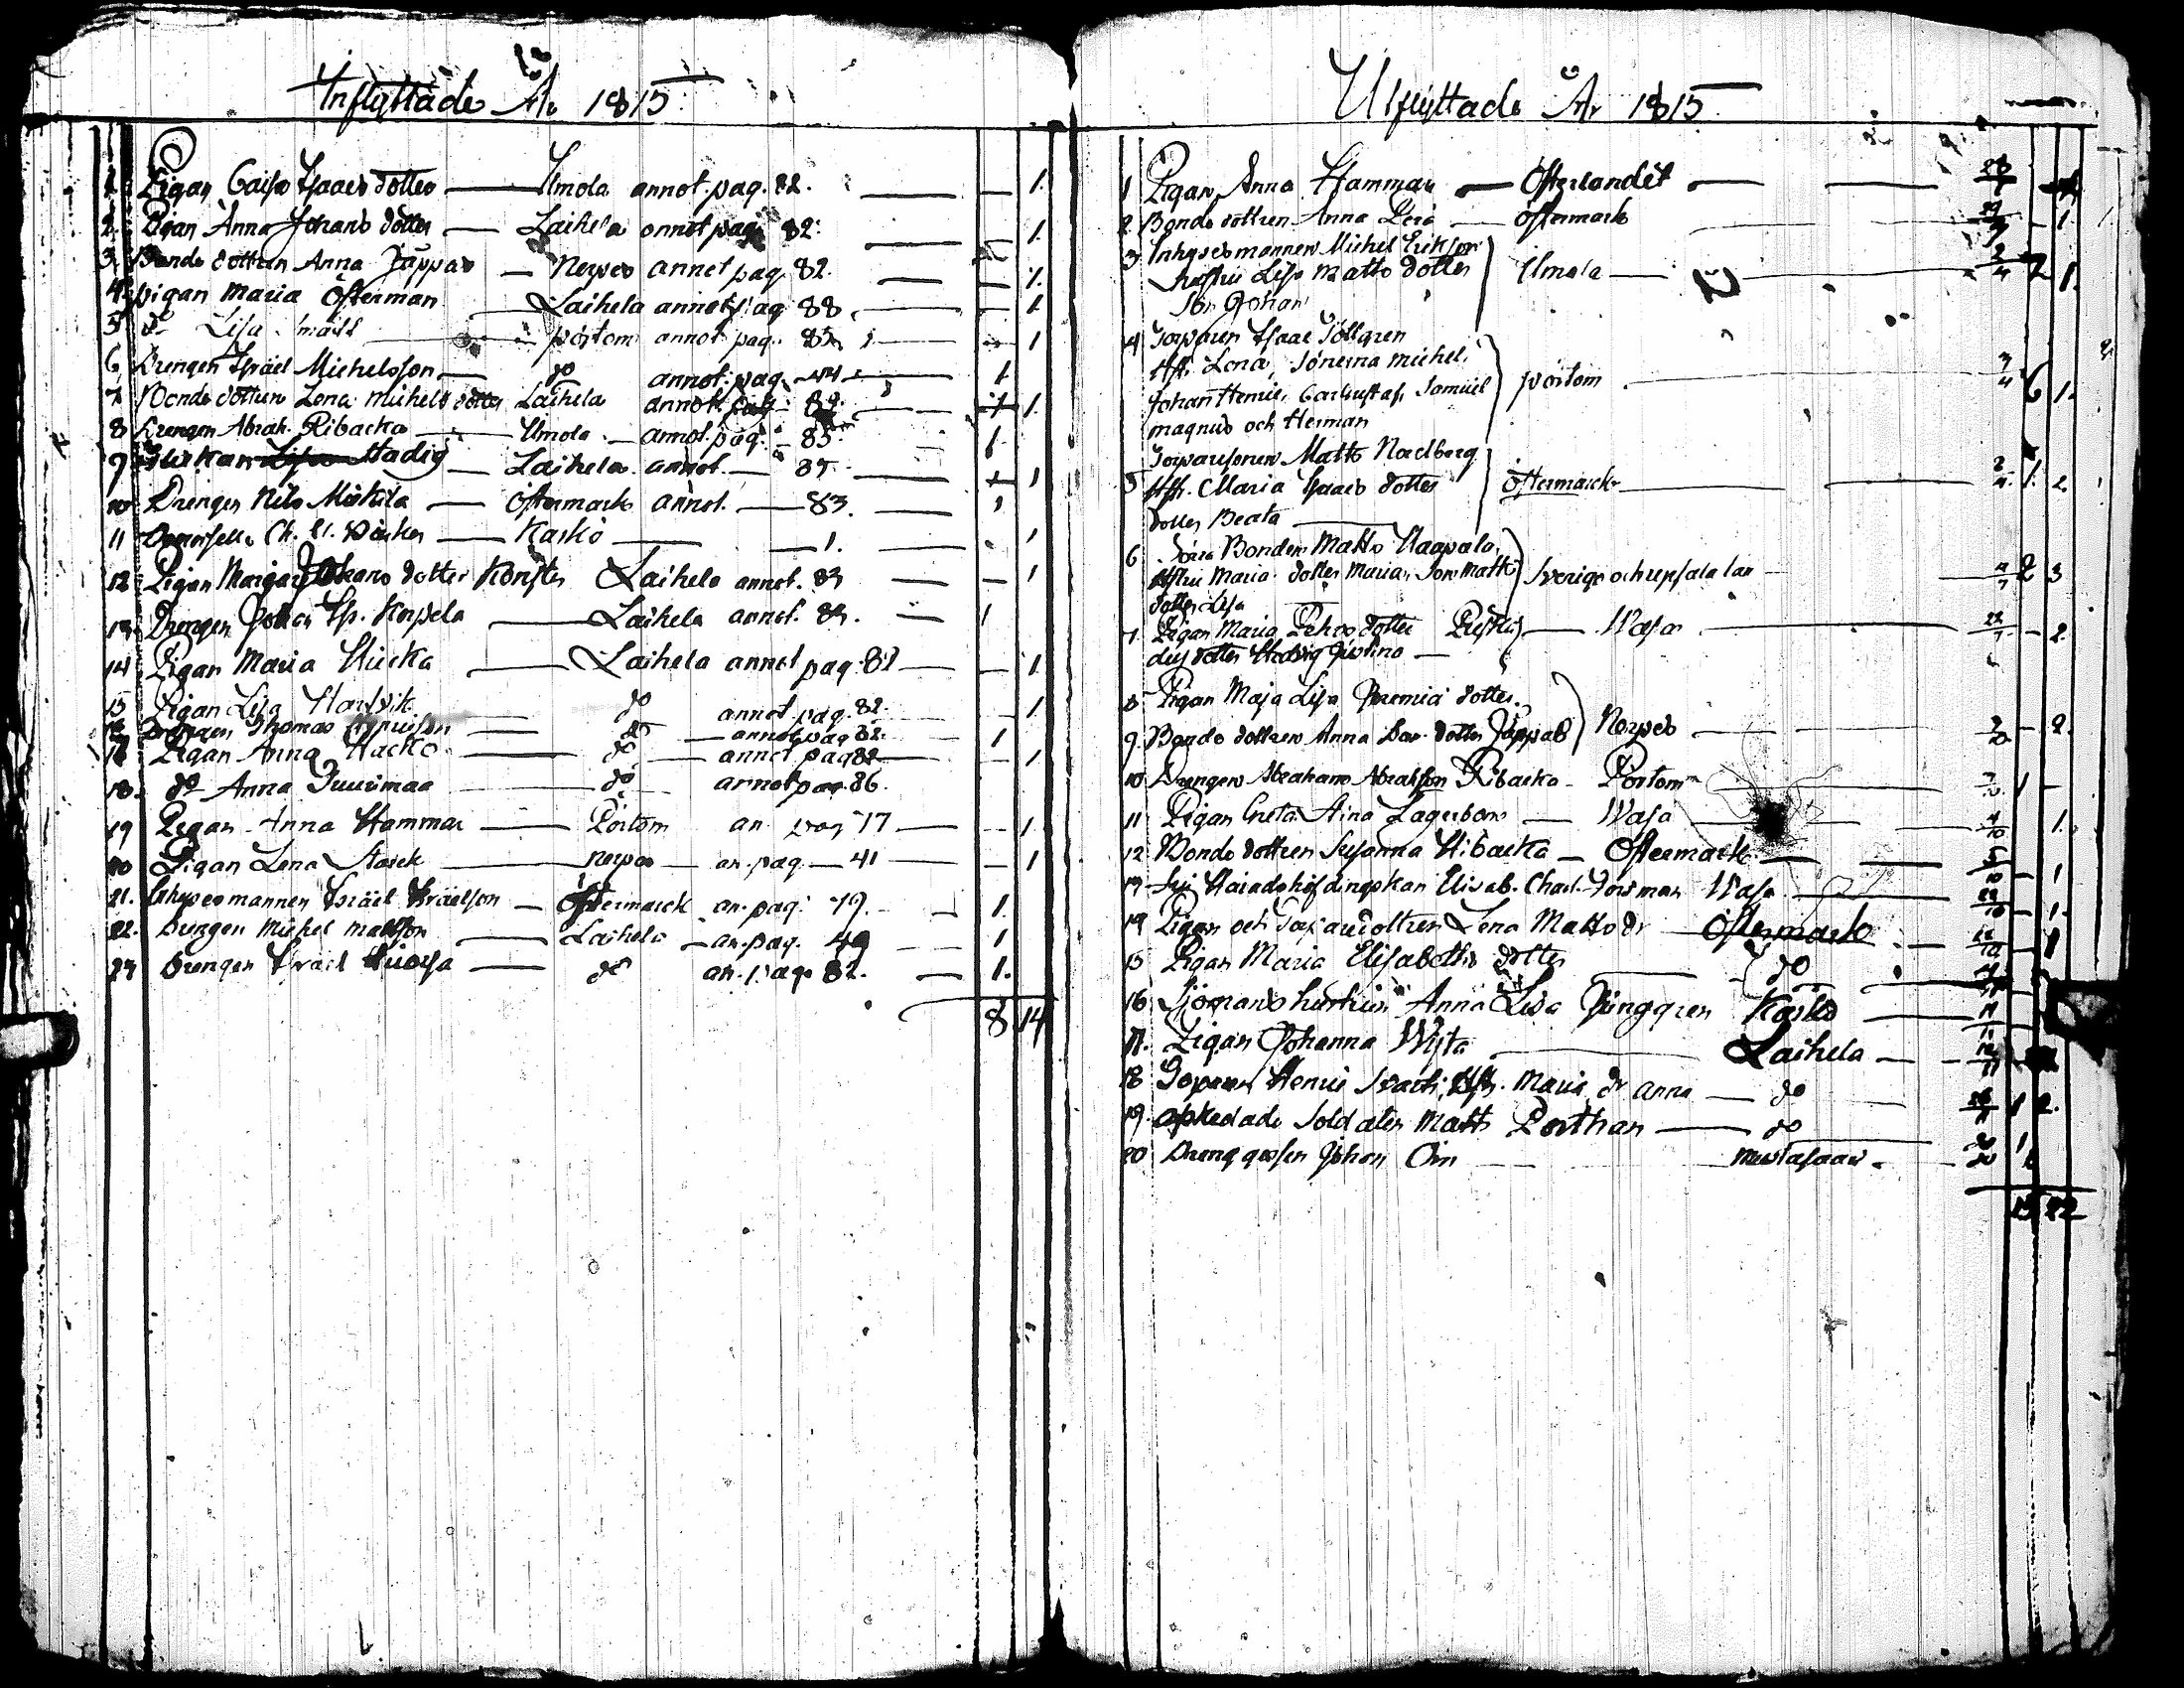 Inflyttade År 1815
1. Pigan Caisa Isaacs dotter — Ilmola annot. pag. 82. — 1.
2. Pigan Anna Johans dotter — Laihela annot pag. 82. — 1.
3. Bonde dottren Anna Jåppas — Nerpes annot pag. 82. — 1.
4. pigan Maria Österman — Laihela annot pag 88 — 1
5 do Lisa — pörtom annot pag. 85 — 1
6. Drengen Israel Michelsson — do annot. pag. 44 — 1
7 Bonde dottren Lena Michels dotter Laihela annot. pag. 1.
8 Drengen Abrah. Ribacka — Ilmola — annot. pag. — 85. 1
9 Stadig — Laihela annot — 85. 1
10 Drengen Nils Mickila — Östermark annot. — 83. 1
11 Ch. — Kaskö — 1. — 1
12 Pigan Margar. Johans dotter Laihela annot. 83 — 1
13. Drengen Johan Is. Korpela — Laihela annot. 83. — 1
14 Pigan Maria — Laihela annot pag. 82 — 1.
15 Pigan Lisa — do annot pag. 82. 1.
16 Drengen Thomas — do — annot pag 82. 1
17 Pigan Anna Hacko — do — annot pag 82 — 1
18. do Anna — do annot pag. 86.
19 Pigan Anna Hammar — Pörtom an pag 17 — 1.
20 Pigan Lena Starck — nerpes — an. pag — 41 — 1
21. Inhysesmannen Israel Israelsson — Östermarck an. pag. 19. — 1.
22. Drengen Michel Mattsson — Laihela — an. pag. 49 — 1
23 Drengen Israel — do an. pag 82. — 1.
8 14
Utflyttade År 1815.
1 Pigan Anna Hammar — Österlandet —
2. Bonde dottren Anna — Östermark 1.
3 Inhysesmannen Michel Eriksson
hustru Lisa Matts dotter Ilmola — 2 1.
Son Johan
4 Torparen Isaac
Hu. Lena, Sönerna Michel,
Johan Henric, Carl Gustaf, Samuel pörtom 6 1.
magnus och Herman
Torparesonen Matts Nordberg
5 Hu. Maria Isaacs dotter Östermarck — 1. 2.
dotter Beata
6. Bonden Matts Haapala,
Hustru Maria dotter Maria, Son Matts Sverige och upsala län — 2 3
dotter Lisa
7. Pigan Maria dotter — Wasa — 2.
des dotter Hedvig —
8 Pigan Maja Lisa Jeremia dotter.
9. Bonde dottren Anna dotter Jåppas Nerpes — 2.
10 Drengen Abraham Abrahsson Ribacka — Pörtom — 1
11 Pigan Greta Stina Lagerbom — Wasa 1.
12 Bonde dottren Susanna Ribacka — Östermark — 1
13 Häradshöfdingskan Elisab. Charl. Forsman Wasa — 1.
14 Pigan och Torparedottren Lena Matts dr Östermark — 1
15 Pigan Maria Elisabeths dotter do
16 Sjömans hustrun Anna Lisa Ljunggren Kaskö —
17. Pigan Johanna — Laihela —
18 Torparen Henric Hu. Maria, dr Anna — do 1 2.
19. afskedade Soldaten Matts Porthan — do 1
20 Dreng gossen Johan — Mustasaari — 1
22